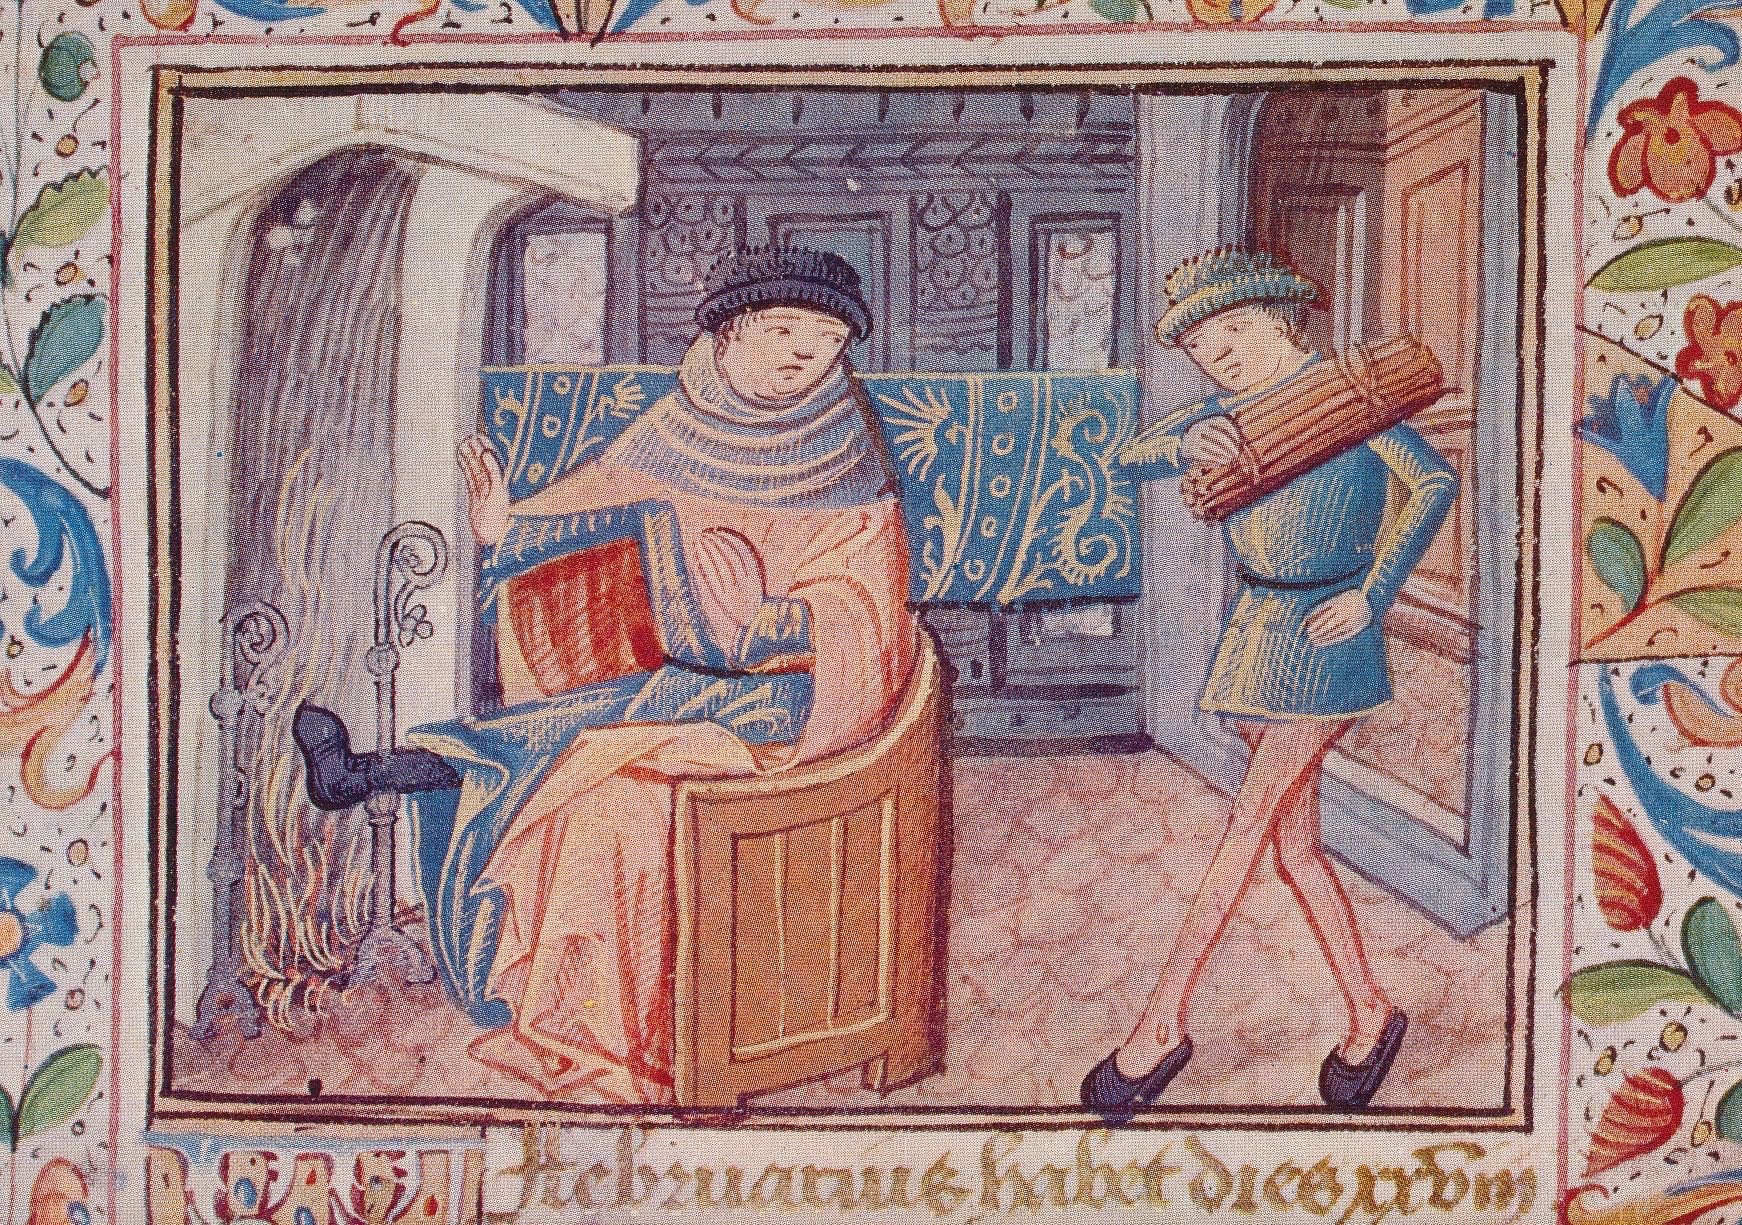 februarius habet dies xxviii